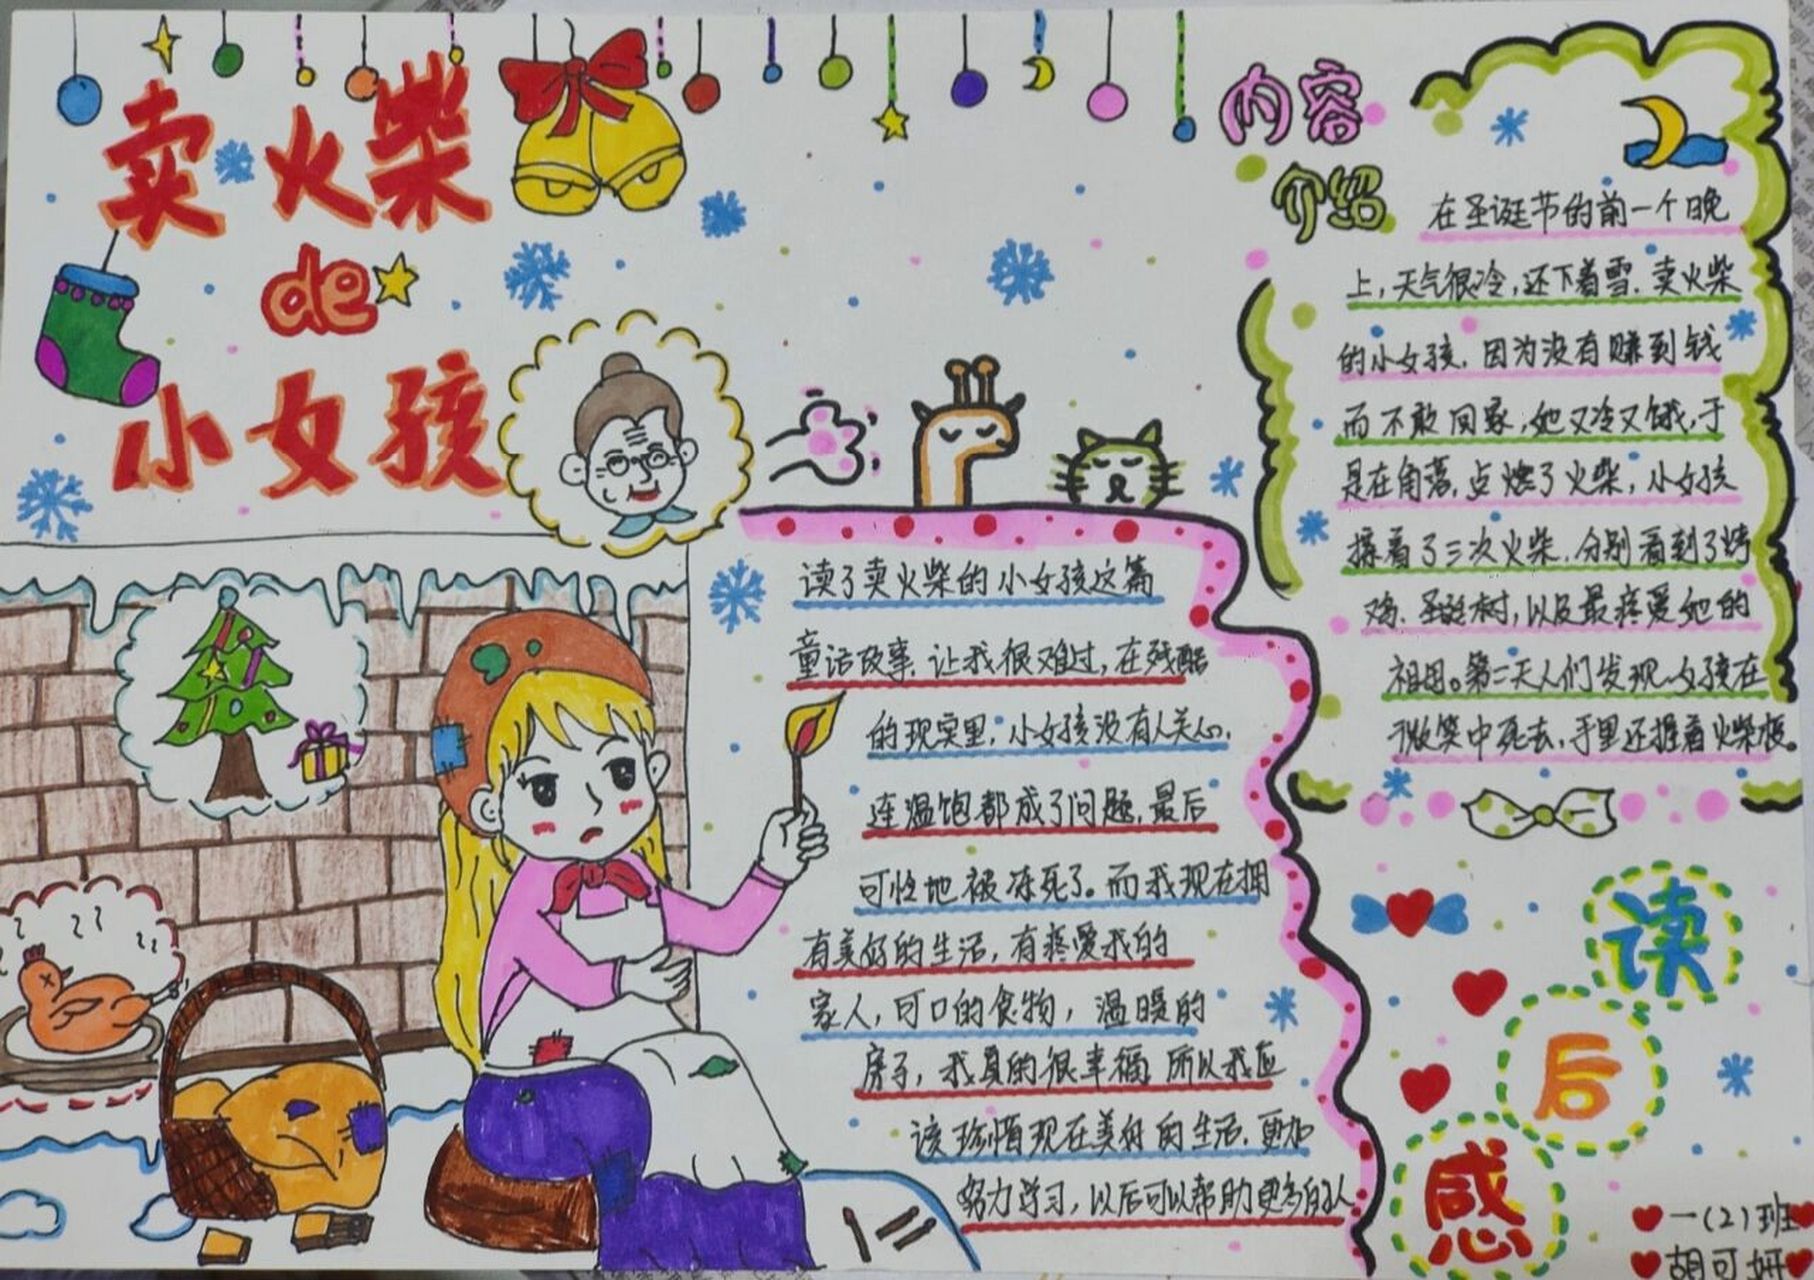 卖火柴
de
小女孩
内容
介绍
在圣诞节的前一个晚
上,天气很冷,还下着雪.卖火柴
的小女孩.因为没有赚到钱
而不敢回家,她又冷又饿,于
是在角落.点燃了火柴,小女孩
擦着了三次火柴.分别看到了烤
鸡.圣诞树,以及最疼爱她的
祖母。第二天人们发现女孩在
微笑中死去,手里还握着火柴梗。
读了卖火柴的小女孩这篇
童话故事.让我很难过,在残酷
的现实里,小女孩没有人关心.
连温饱都成了问题.最后
可怜地被冻死了。而我现在拥
有美好的生活,有疼爱我的
家人,可口的食物,温暖的
房子,我真的很幸福,所以我应
该珍惜现在美好的生活.更加
努力学习,以后可以帮助更多的人
读
后
感
一(2)班
胡可妍